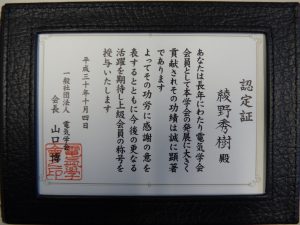 認定証
綾野秀樹 殿
あなたは長年にわたり電気学会
会員として本学会の発展に大きく
貢献されその功績は誠に顕著
であります
よってその功労に感謝の意を
表するとともに今後の更なる
活躍を期待し上級会員の称号を
授与いたします
平成三十年十月四日
一般社団法人 電気学会
会長 山口 博